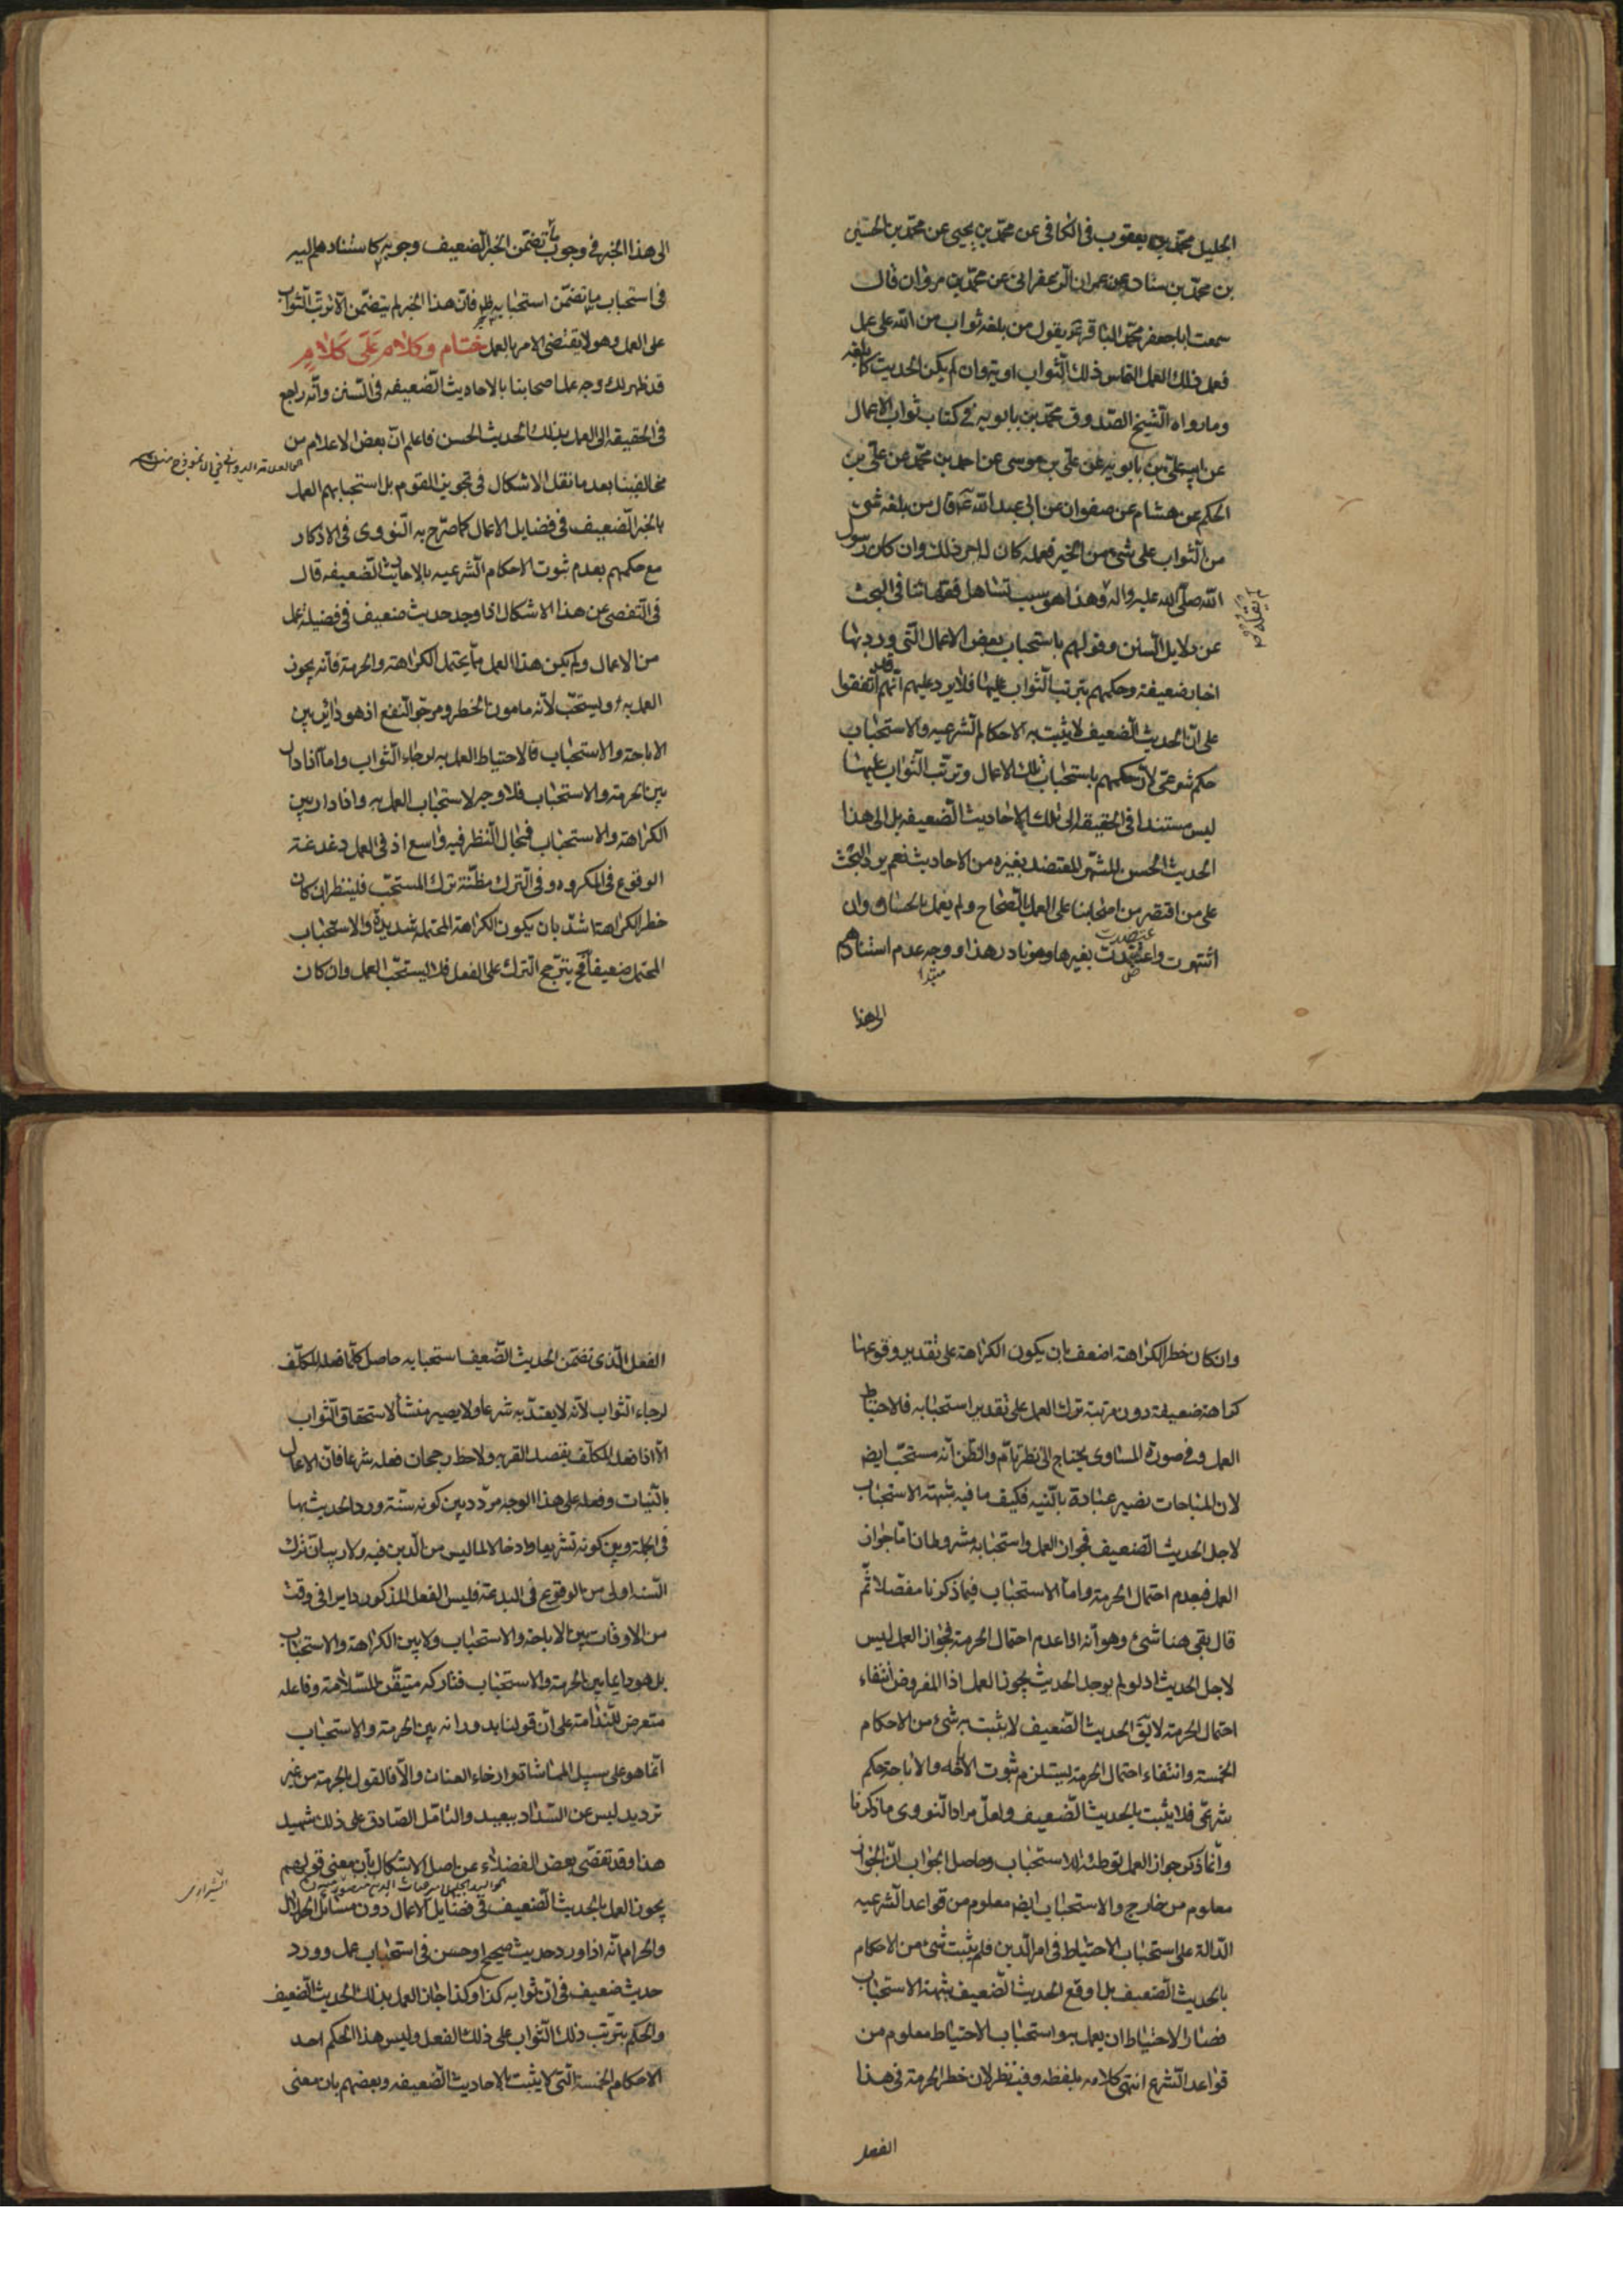 الجليل محمد بن يعقوب فى الكافى عن محمد بن يحيى عن محمد بن الحسين
بن محمد بن سنان عن عمران الزعفرانى عن محمد بن مروان قال
سمعت ابا جعفر محمد الباقر ع يقول من بلغه ثواب من الله على عمل
فعمل ذلك العمل التماس ذلك الثواب اوتيه وان لم يكن الحديث كما بلغه
وما رواه الشيخ الصدوق محمد بن بابويه فى كتاب ثواب الاعمال
عن ابيه على بن بابويه عن على بن موسى عن احمد بن محمد عن على بن
الحكم عن هشام عن صفوان عن ابى عبد الله ع قال من بلغه شئ
من الثواب على شئ من الخير فعمله كان له اجر ذلك وان كان رسول
الله صلى الله عليه واله وهذا هو سبب تساهل فقهائنا فى البحث
لم يقله
عن دلايل السنن وقولهم باستحباب بعض الاعمال التى ورد بها
اخبار ضعيفة وحكمهم بترتب الثواب عليها فلا يرد عليهم انهم قد اتفقوا
على ان الحديث الضعيف لا يثبت به الاحكام الشرعيه والاستحباب
حكم شرعى لان حكمهم باستحباب تلك الاعمال وترتب الثواب عليها
ليس مستندا فى الحقيقه الى تلك الاحاديث الضعيفه بل الى هذا
الحديث الحسن المشتهر المعتضد بغيره من الاحاديث نعم يرد البحث
على من اقتصر من اصحابنا على العمل بالصحاح ولم يعمل بالحسان وان
اشتهرت واعتضدت بغيرها وهو نادر هذا ووجه عدم استنادهم
الى هذا
الى هذا الخبر فى وجوب ما تضمن الخبر الضعيف وجوبه كاستنادهم اليه
فى استحباب ما تضمن استحبابه ظاهر فان هذا الخبر لم يتضمن الا ترتب الثواب
على العمل وهو لا يقتضى الامر بالعمل ختام وكلام على كلام
قد ظهر لك وجه عمل اصحابنا بالاحاديث الضعيفه فى السنن وانه راجع
فى الحقيقه الى العمل بذلك الحديث الحسن فاعلم ان بعض الاعلام من
هو العلامة الدوانى فى الانموذج منه
مخالفينا بعد ما نقل الاشكال فى تجويز القوم بل استحبابهم العمل
بالخبر الضعيف فى فضايل الاعمال كما صرح به النووى فى الاذكار
مع حكمهم بعدم ثبوت الاحكام الشرعيه بالاحاديث الضعيفه قال
فى التفصى عن هذا الاشكال اذا وجد حديث ضعيف فى فضيلة عمل
من الاعمال ولم يكن هذا العمل مما يحتمل الكراهة والحرمة فانه يجوز
العمل به ويستحب لانه مامون الخطر ومرجو النفع اذ هو دائر بين
الاباحة والاستحباب فالاحتياط العمل به لرجاء الثواب واما اذا دار
بين الحرمة والاستحباب فلا وجه لاستحباب العمل به واذا دار بين
الكراهة والاستحباب فمجال النظر فيه واسع اذ فى العمل دغدغة
الوقوع فى المكروه وفى الترك مظنة ترك المستحب فلينظر ان كان
خطر الكراهة اشد بان يكون الكراهة المحتمله شديدة والاستحباب
المحتمل ضعيفا فح يترجح الترك على الفعل فلا يستحب العمل وان كان
وان كان خطر الكراهة اضعف بان يكون الكراهة على تقدير وقوعها
كراهة ضعيفة دون مرتبة ترك العمل على تقدير استحبابه فالاحتياط
العمل وفى صورة المساوى يحتاج الى نظر تام والظن انه مستحب ايض
لان المباحات تصير عبادة بالنيه فكيف ما فيه شبهة الاستحباب
لاجل الحديث الضعيف فجواز العمل واستحبابه مشروطان اما جواز
العمل فبعدم احتمال الحرمة واما الاستحباب فبما ذكرنا مفصلا ثم
قال بقى هنا شئ وهو انه اذا عدم احتمال الحرمة فجواز العمل ليس
لاجل الحديث اذ لو لم يوجد الحديث يجوز العمل اذ المفروض انتفاء
احتمال الحرمة لا يق الحديث الضعيف لا يثبت به شئ من الاحكام
الخمسة وانتفاء احتمال الحرمة يستلزم ثبوت الاباحه والاباحة حكم
شرعى فلا يثبت بالحديث الضعيف ولعل مراد النووى ما ذكرنا
وانما ذكر جواز العمل توطئة للاستحباب وحاصل الجواب ان الجواز
معلوم من خارج والاستحباب ايض معلوم من قواعد الشرعيه
الدالة على استحباب الاحتياط فى امر الدين فلم يثبت شئ من الاحكام
بالحديث الضعيف بل اوقع الحديث الضعيف شبهة الاستحباب
فصار الاحتياط ان يعمل به واستحباب الاحتياط معلوم من
قواعد الشرع انتهى كلامه بلفظه وفيه نظر لان خطر الحرمة فى هذا
الفعل
الفعل الذى تضمن الحديث الضعيف استحبابه حاصل كلما فعله المكلف
لرجاء الثواب لانه لا يعتد به شرعا ولا يصير منشأ لاستحقاق الثواب
الا اذا فعله المكلف بقصد القربه ولاحظ رجحان فعله شرعا فان الاعمال
بالنيات وفعله على هذا الوجه مردد بين كونه سنة ورد الحديث بها
فى الجملة وبين كونه تشريعا وادخالا لما ليس من الدين فيه ولا ريب ان ترك
السنه اولى من الوقوع فى البدعة فليس الفعل المذكور دايرا فى وقت
من الاوقات بين الاباحة والاستحباب ولا بين الكراهة والاستحباب
بل هو دايما بين الحرمة والاستحباب فتاركه متيقن للسلامة وفاعله
متعرض للندامة على ان قولنا بدورانه بين الحرمة والاستحباب
انما هو على سبيل المماشاة وارخاء العنان والا فالقول بالحرمة من غير
ترديد ليس عن السداد ببعيد والتامل الصادق على ذلك شهيد
هذا وقد تفصى بعض الفضلاء عن اصل الاشكال بان معنى قولهم
الشيرازى
يجوز العمل بالحديث الضعيف فى فضايل الاعمال دون مسائل الحلال
والحرام انه اذا ورد حديث صحيح او حسن فى استحباب عمل وورد
حديث ضعيف فى ان ثوابه كذا وكذا جاز العمل بذلك الحديث الضعيف
والحكم بترتب ذلك الثواب على ذلك الفعل وليس هذا الحكم احد
الاحكام الخمسة التى لا يثبت بالاحاديث الضعيفه وبعضهم بان معنى